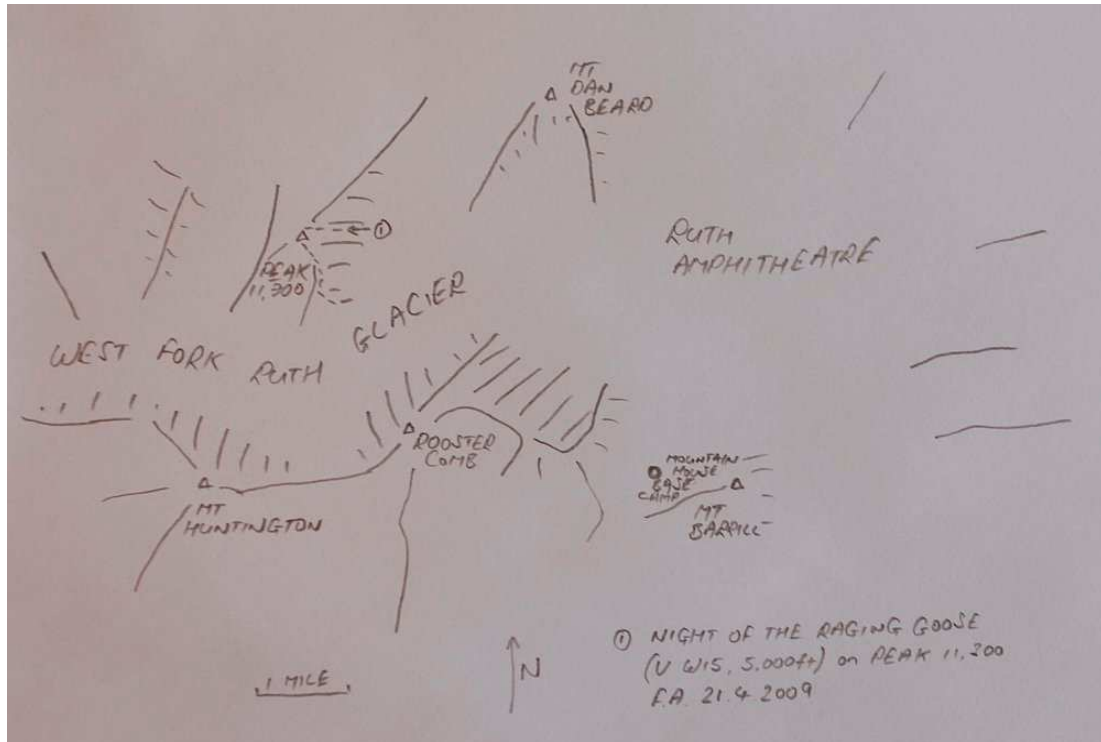 MT
DAN
BEARD
①
PEAK
11,300
RUTH
AMPHITHEATRE
WEST FORK RUTH GLACIER
ROOSTER
COMB
MOUNTAIN
HOUSE
BASE
CAMP
MT
HUNTINGTON
MT
BARRILL
① NIGHT OF THE RAGING GOOSE
(V WI5, 5,000ft) on PEAK 11,300
F.A. 21.4 2009
N
1 MILE